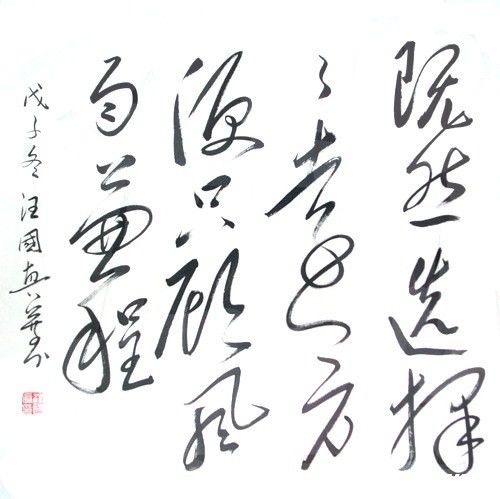 既然选择
了远方
便只顾风
雨兼程
戊子冬汪國真